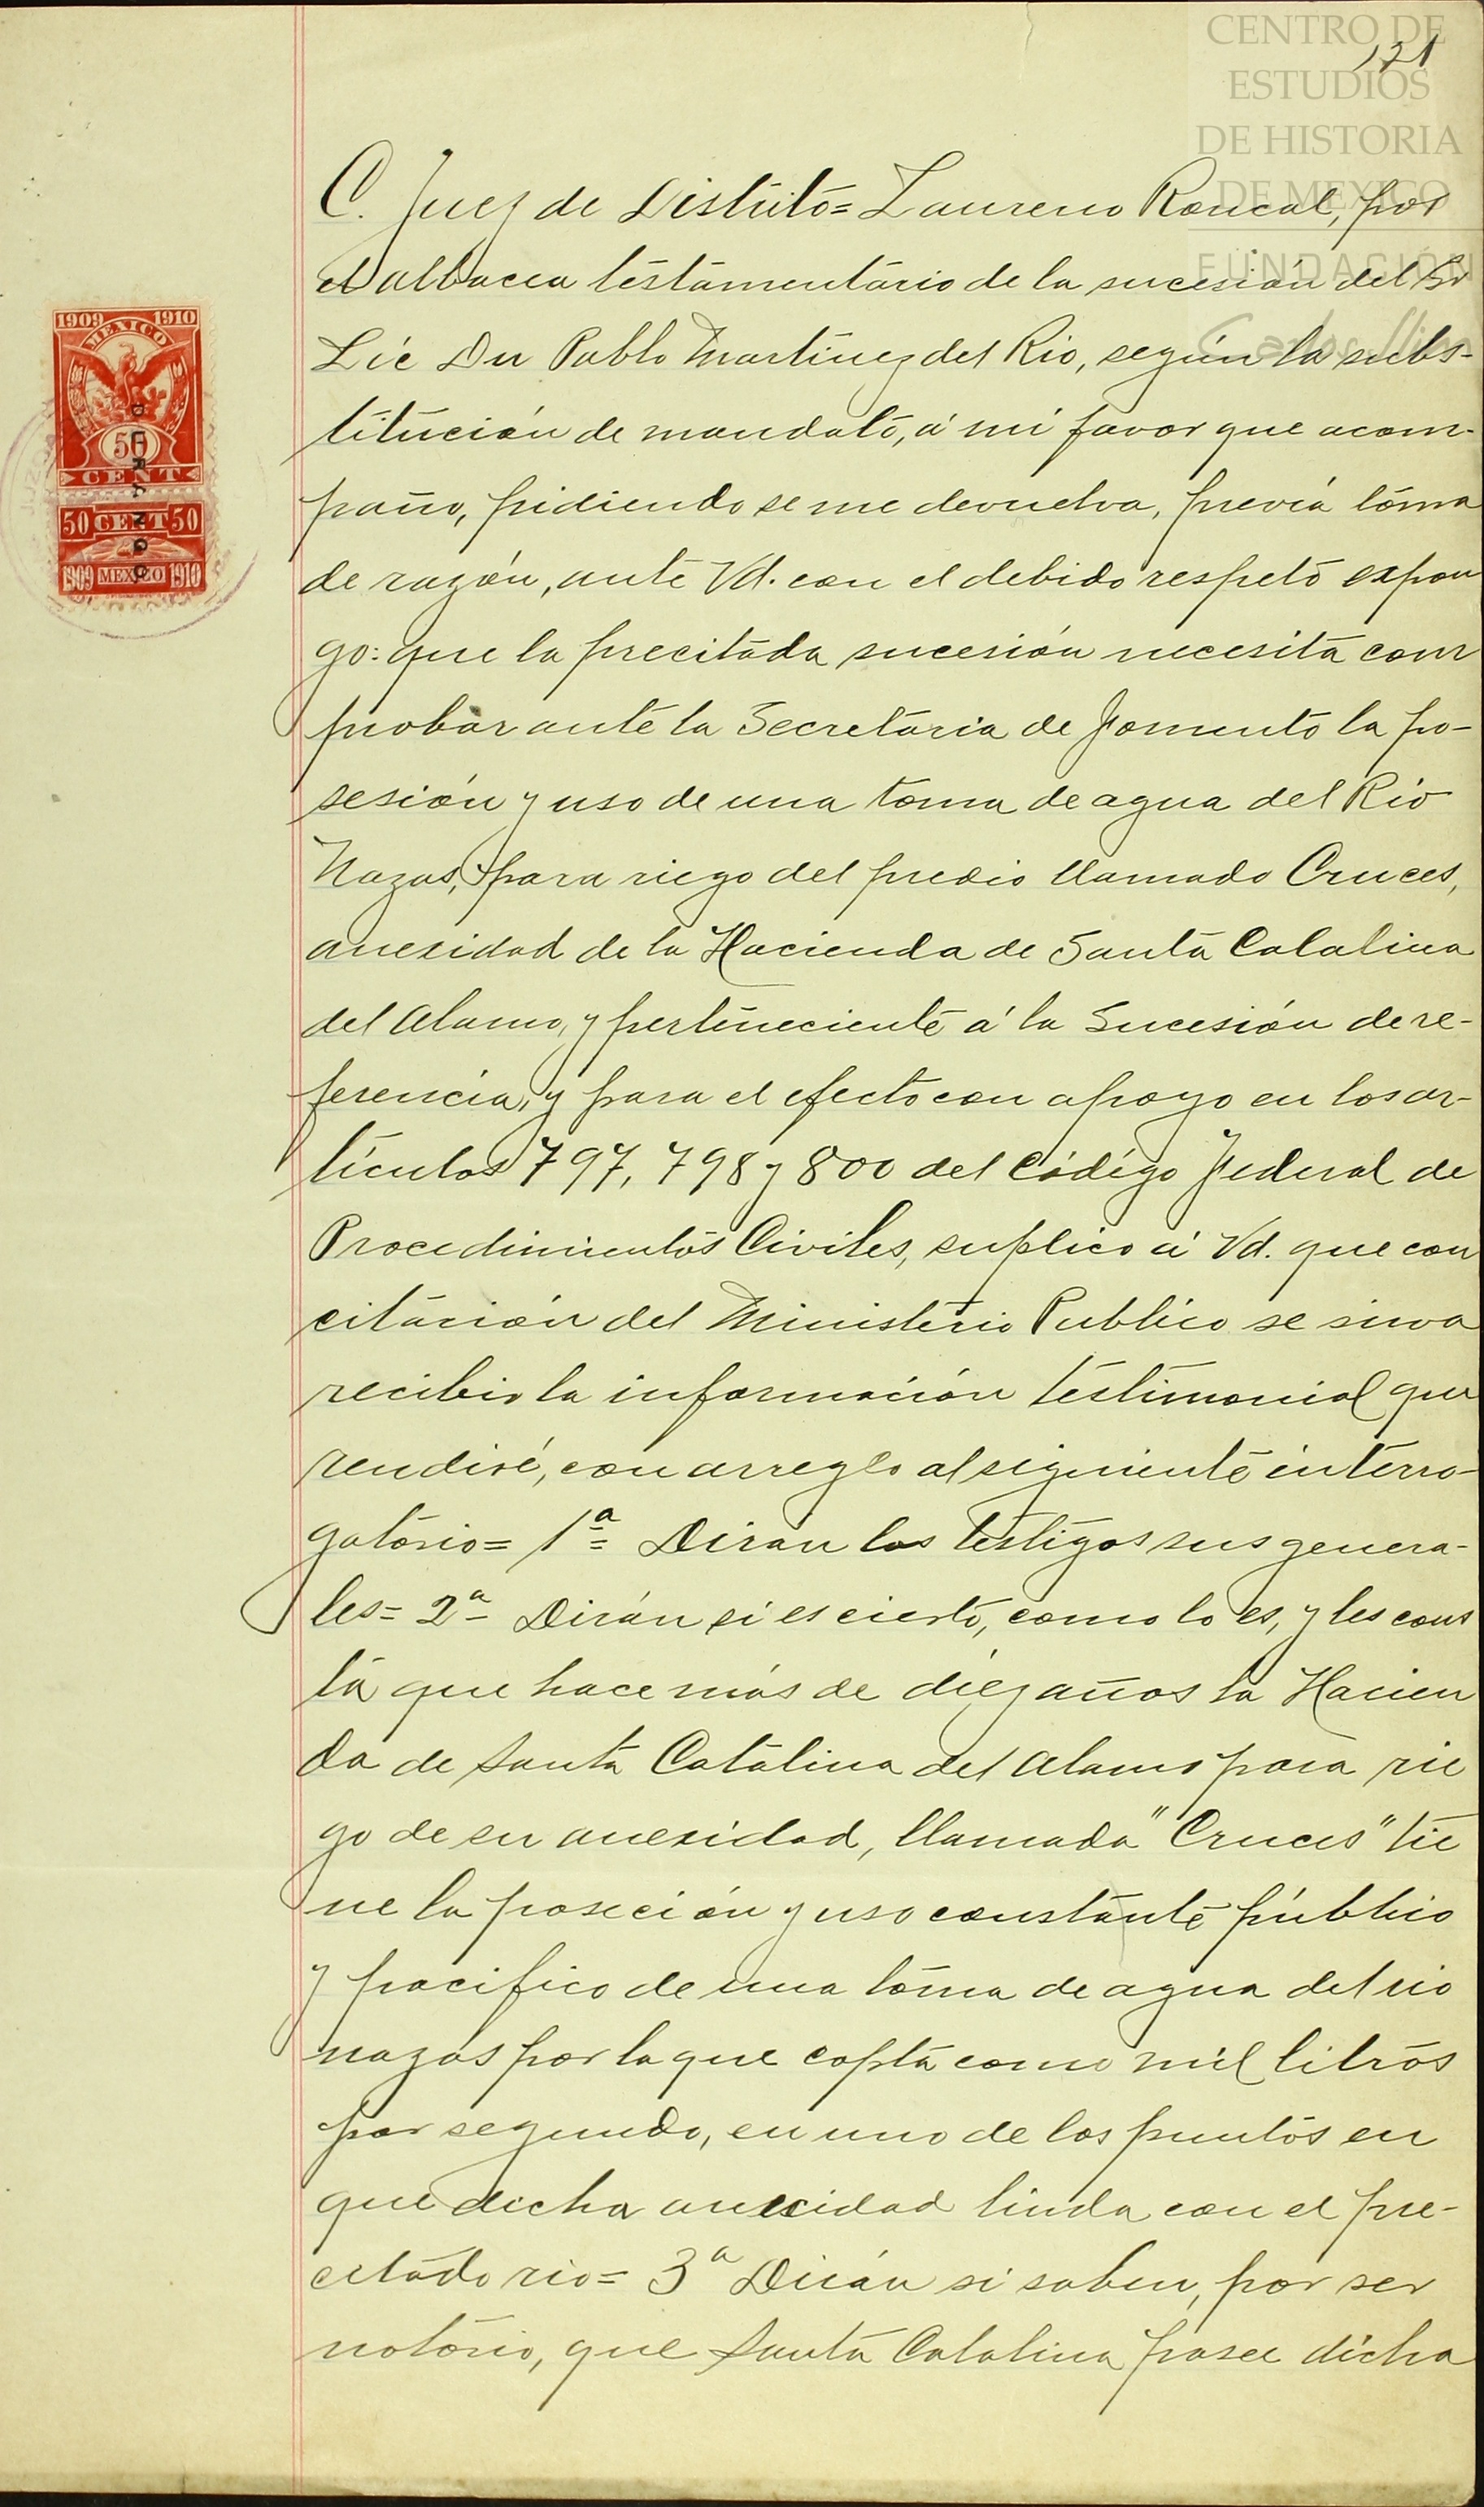 CENTRO DE
ESTUDIOS
DE HISTORIA
DE MEXICO
FUNDACION
Carlos Slim
121
1909 1910
MEXICO
50
CENT
DURANGO
50 CENT 50
1909 MEXICO 1910
C. Juez de Distrito= Laureno Roncal, por
el albacea testamentario de la sucesión del Sr
Lic Dn Pablo Martinez del Rio, según la subs-
titución de mandato, á mi favor que acom-
paño, pidiendo se me devuelva, previa toma
de razón, ante Vd. con el debido respeto expon
go: que la precitada sucesión necesita com
probar ante la Secretaria de Fomento la po-
sesión y uso de una toma de agua del Rio
Nazas, para riego del predio llamado Cruces,
anexidad de la Hacienda de Santa Catalina
del Alamo, y perteneciente á la Sucesión de re-
ferencia, y para el efecto con apoyo en los ar-
tículos 797, 798 y 800 del Código Federal de
Procedimientos Civiles, suplico á Vd. que con
citación del Ministerio Publico se sirva
recibir la información testimonial que
rendiré, con arreglo al siguiente interro-
gatorio= 1ª= Diran los testigos sus genera-
les= 2ª- Dirán si es cierto, como lo es, y les cons
ta que hace más de diez años la Hacien
da de Santa Catalina del Alamo para rie
go de su anexidad, llamada "Cruces" tie
ne la poseción y uso constante público
y pacifico de una toma de agua del rio
nazas por la que capta como mil litros
por segundo, en uno de los puntos en
que dicha anexidad linda con el pre-
citado rio= 3ª Dirán si saben, por ser
notorio, que Santa Catalina posee dicha